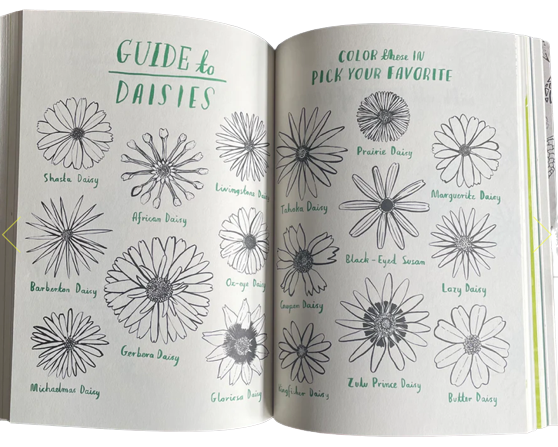 GUIDE to
DAISIES
Shasta Daisy
African Daisy
Livingstone Daisy
Barberton Daisy
Gerbera Daisy
Ox-eye Daisy
Michaelmas Daisy
Gloriosa Daisy
COLOR these IN
PICK YOUR FAVORITE
Prairie Daisy
Tahoka Daisy
Marguerite Daisy
Black-Eyed Susan
Daisy
Lazy Daisy
Kingfisher Daisy
Zulu Prince Daisy
Butter Daisy